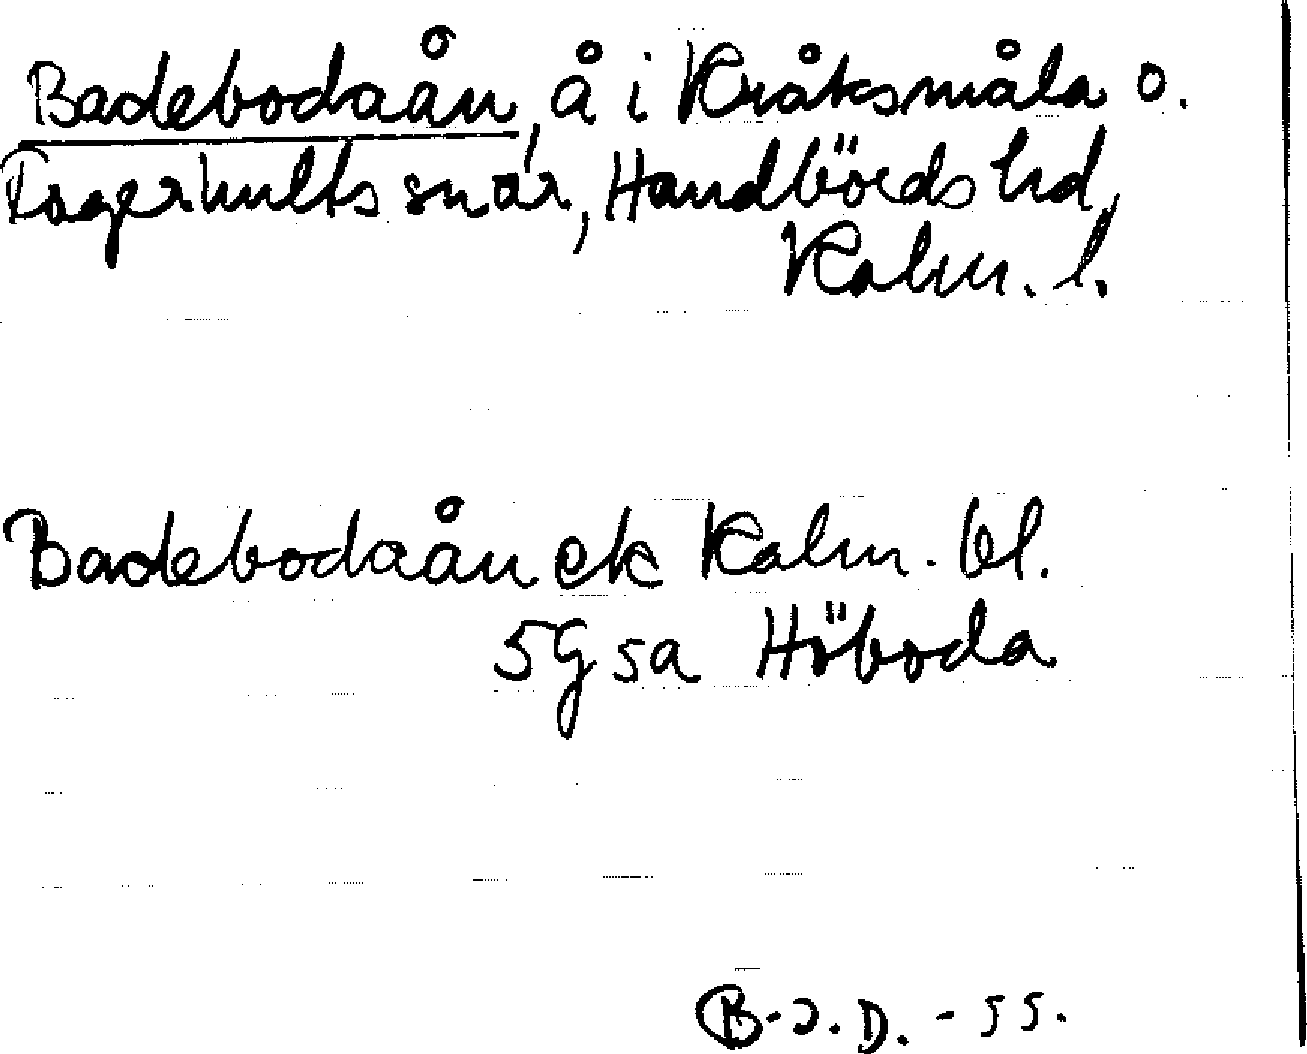 Badebodaån, å i Kråksmåla o.
Fagerhults snar, Handbörds hd,
Kalm. l.
Badebodaån ek Kalm. bl.
5g5a Höboda
B.J.D. - 55.